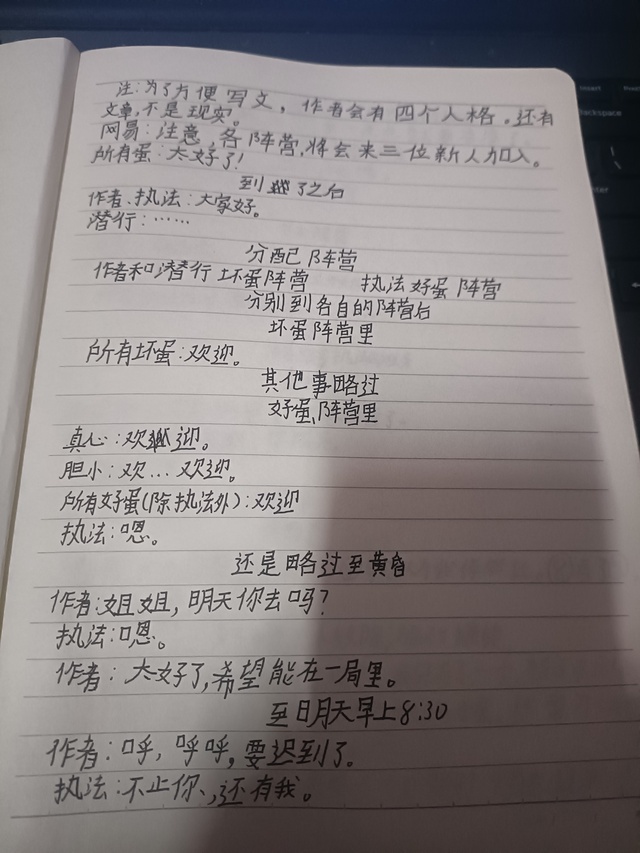 注:为了方便写文，作者会有四个人格。还有
文章，不是现实。
网易:注意，各阵营，将会来三位新人加入。
所有蛋:太好了!
到了之后
作者、执法:大家好。
潜行:……
分配阵营
作者和潜行 坏蛋阵营 执法 好蛋 阵营
分别到各自的阵营后
坏蛋阵营里
所有坏蛋:欢迎。
其他事略过
好蛋阵营里
真心:欢迎。
胆小:欢...欢迎。
所有好蛋(除执法外):欢迎
执法:嗯。
还是略过至黄昏
作者:姐姐，明天你去吗?
执法:嗯。
作者:太好了,希望能在一局里。
至明天早上8:30
作者:呼，呼呼,要迟到了。
执法:不止你、,还有我。
Insert
backspace
enter